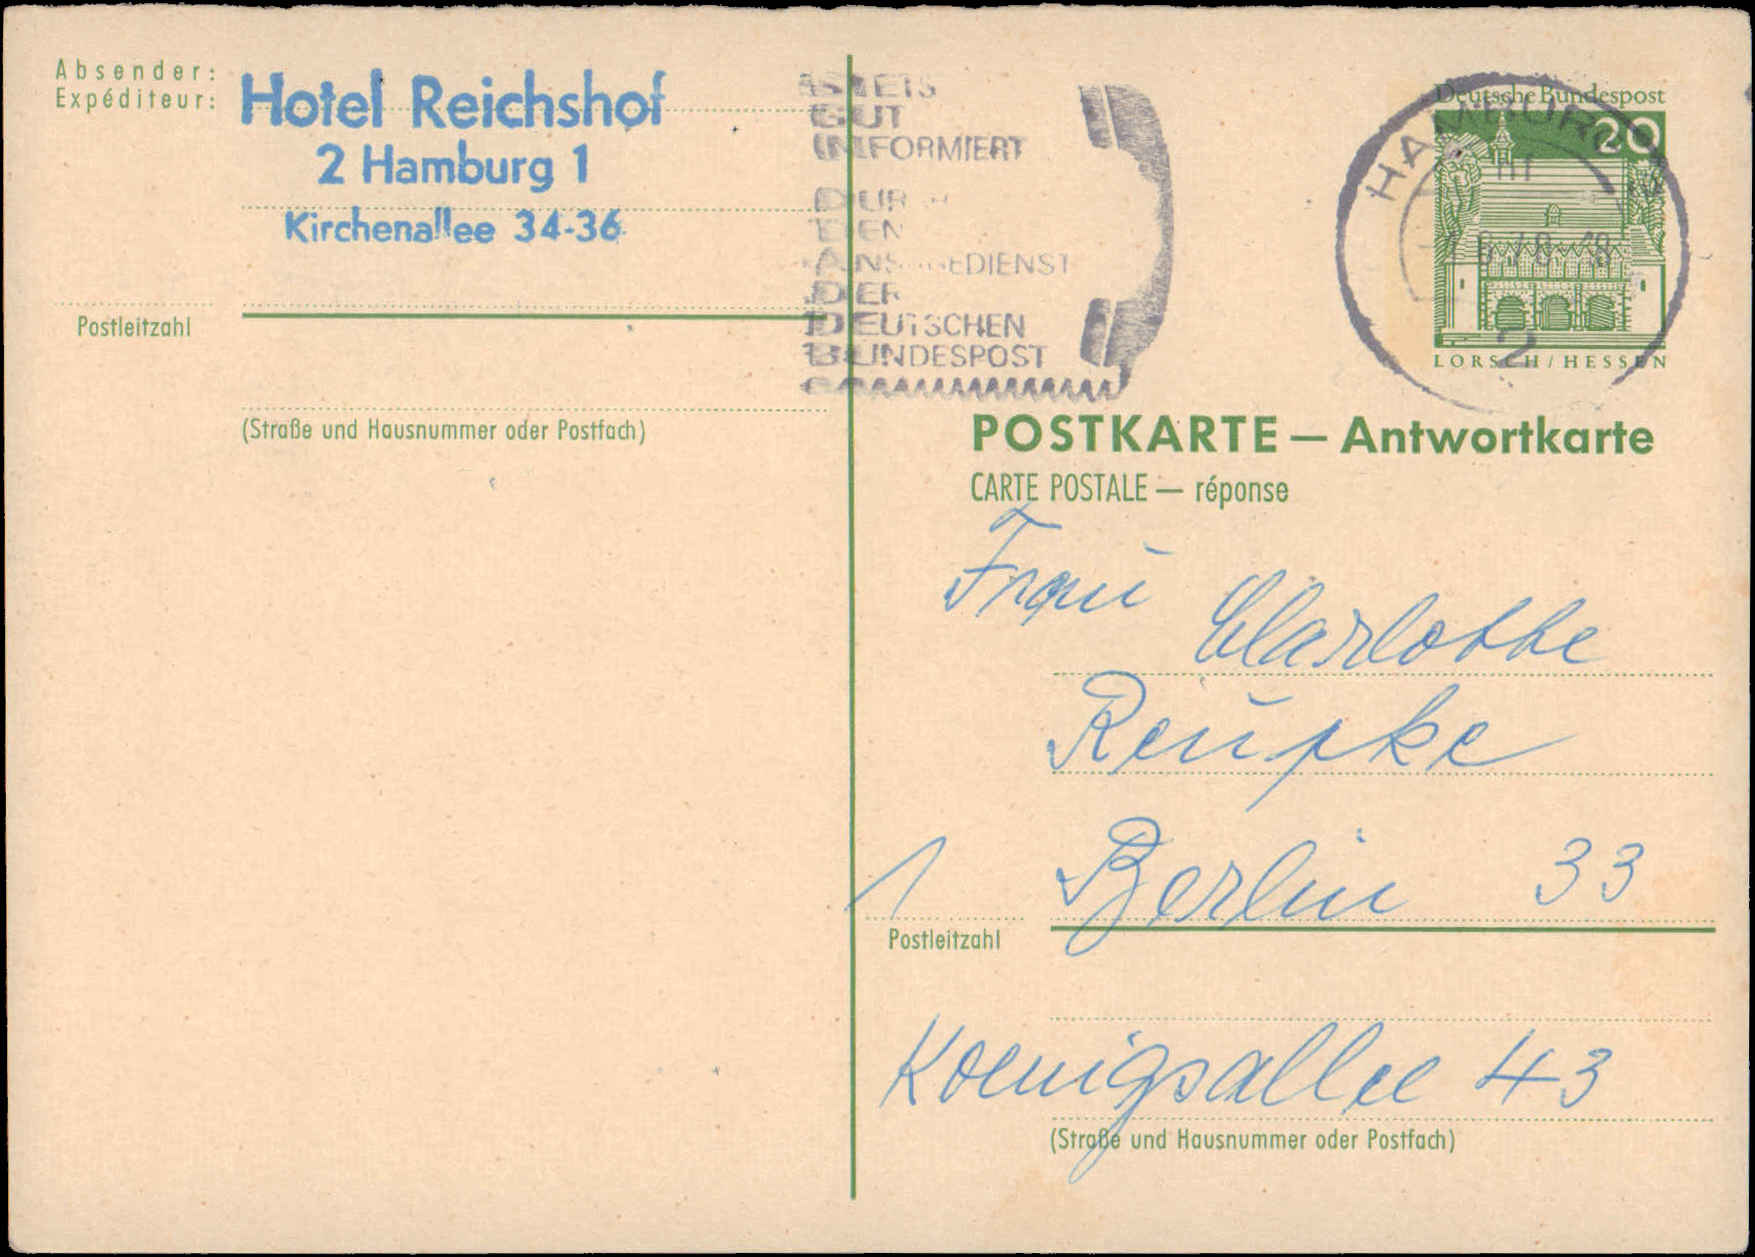 Absender:
Expéditeur:
Hotel Reichshof
2 Hamburg 1
Kirchenallee 34-36
Postleitzahl
(Straße und Hausnummer oder Postfach)
STETS
GUT
INFORMIERT
DURCH
DEN
ANSAGEDIENST
DER
DEUTSCHEN
BUNDESPOST
HAMBURG
2
Deutsche Bundespost
20
LORSCH/HESSEN
POSTKARTE — Antwortkarte
CARTE POSTALE — réponse
Frau Charlotte
Reupke
1 Berlin 33
Postleitzahl
Koenigsallee 43
(Straße und Hausnummer oder Postfach)